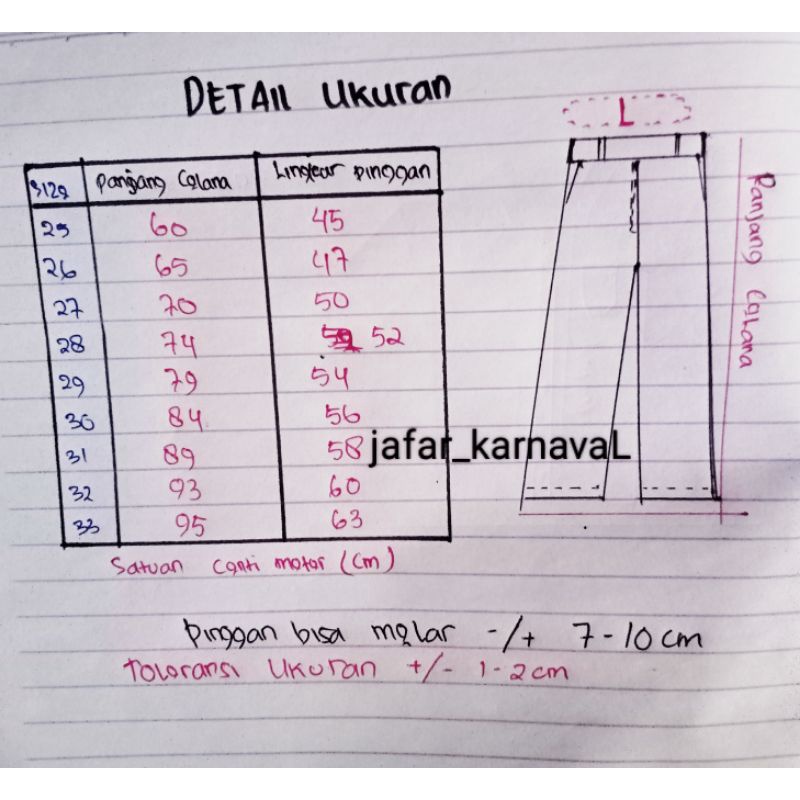 DETAIL Ukuran
L
Size Panjang Celana Lingkar pinggan
25 60 45
26 65 47
27 70 50
28 74 52
29 79 54
30 84 56
31 89 58
32 93 60
33 95 63
Panjang Celana
jafar_karnavaL
Satuan Centi meter (Cm)
Pinggan bisa melar -/+ 7-10 cm
Toleransi Ukuran +/- 1-2 cm